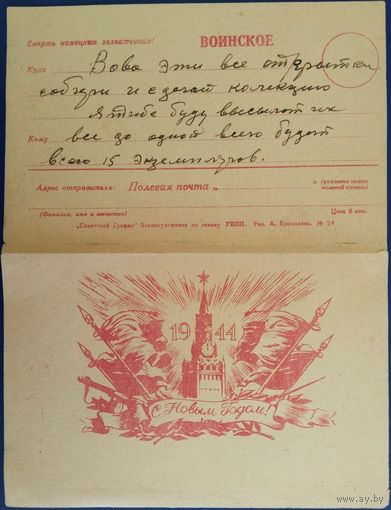 Смерть немецким захватчикам!
ВОИНСКОЕ
Куда Вова эти все открытки
собери и сделай колекцию
Я тебе буду высылат их
Кому все до одной всего будет
всего 15 экземпляров.
Адрес отправителя: Полевая почта „
№ (указать номер полевой почты)
(Фамилия, имя и отчество)
Цена 6 коп.
„Советский График“ Всекохудожника по заказу УВПП. Рис. А. Ермолаева. № 24
1944
С Новым Годом!
www.ay.by